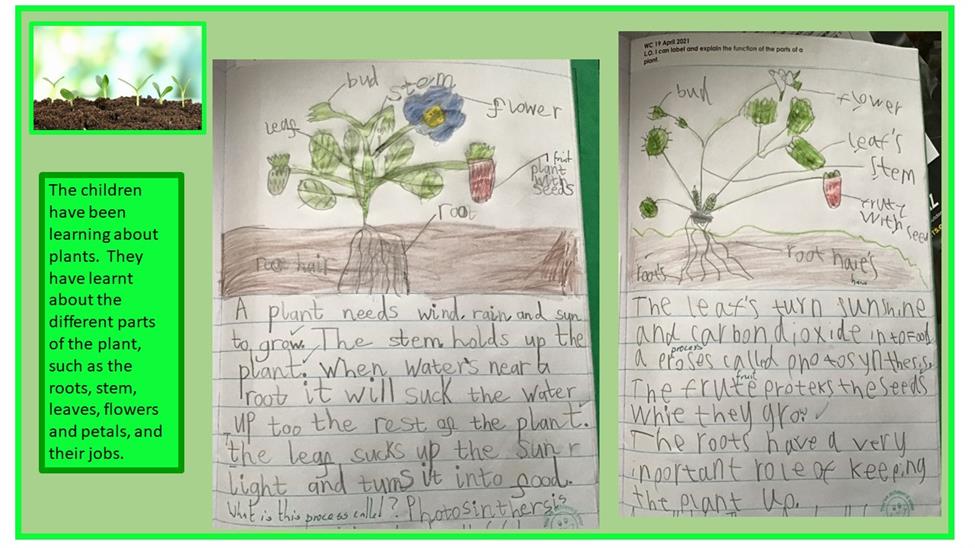 The children
have been
learning about
plants. They
have learnt
about the
different parts
of the plant,
such as the
roots, stem,
leaves, flowers
and petals, and
their jobs.
bud
stem
flower
leaf
1 fruit
plant
with
seeds
root
root hair
A plant needs wind, rain and sun
to grow. The stem holds up the
plant. When water's near a
root it will suck the water
up too the rest of the plant.
The leaf sucks up the sun
light and turns it into food.
What is this process called? Photosinthersis
WC 19 April 2021
L.O. I can label and explain the function of the parts of a
plant.
bud
flower
leaf's
stem
fruty
with seed
root's
root hare's
hair
The leaf's turn sunshine
and carbondioxide into food
process
a proses called photosynthesis.
fruit
The frute proteks the seeds
whie they gro.
The roots have a very
inportant role of keeping
the plant up.